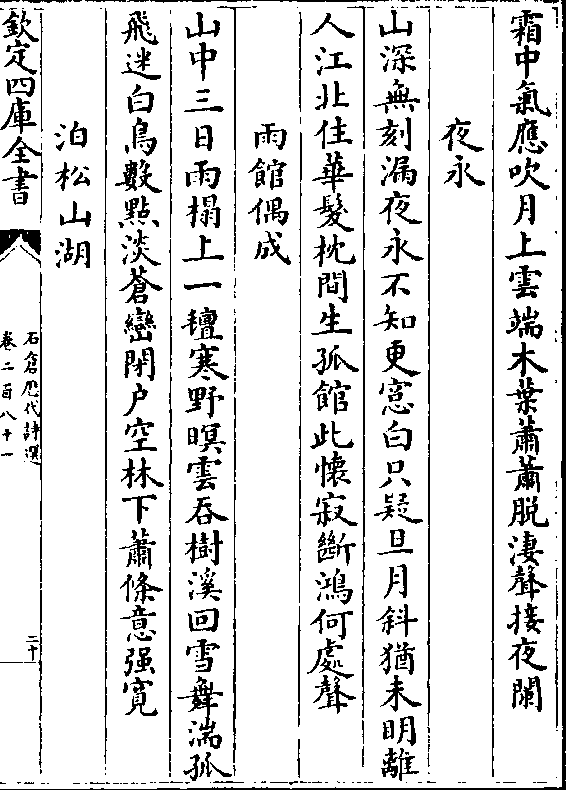 霜中氣應吹月上雲端木葉蕭蕭脱淒聲接夜闌
夜永
山深無刻漏夜永不知更窓白只疑旦月斜猶未明離
人江北住華髮枕間生孤館此懷寂斷鴻何處聲
雨館偶成
山中三日雨榻上一氊寒野暝雲吞樹溪回雪舞湍孤
飛迷白鳥數點淡蒼巒閉户空林下蕭條意强寬
泊松山湖
欽定四庫全書
石倉歷代詩選
卷二百八十一
二十